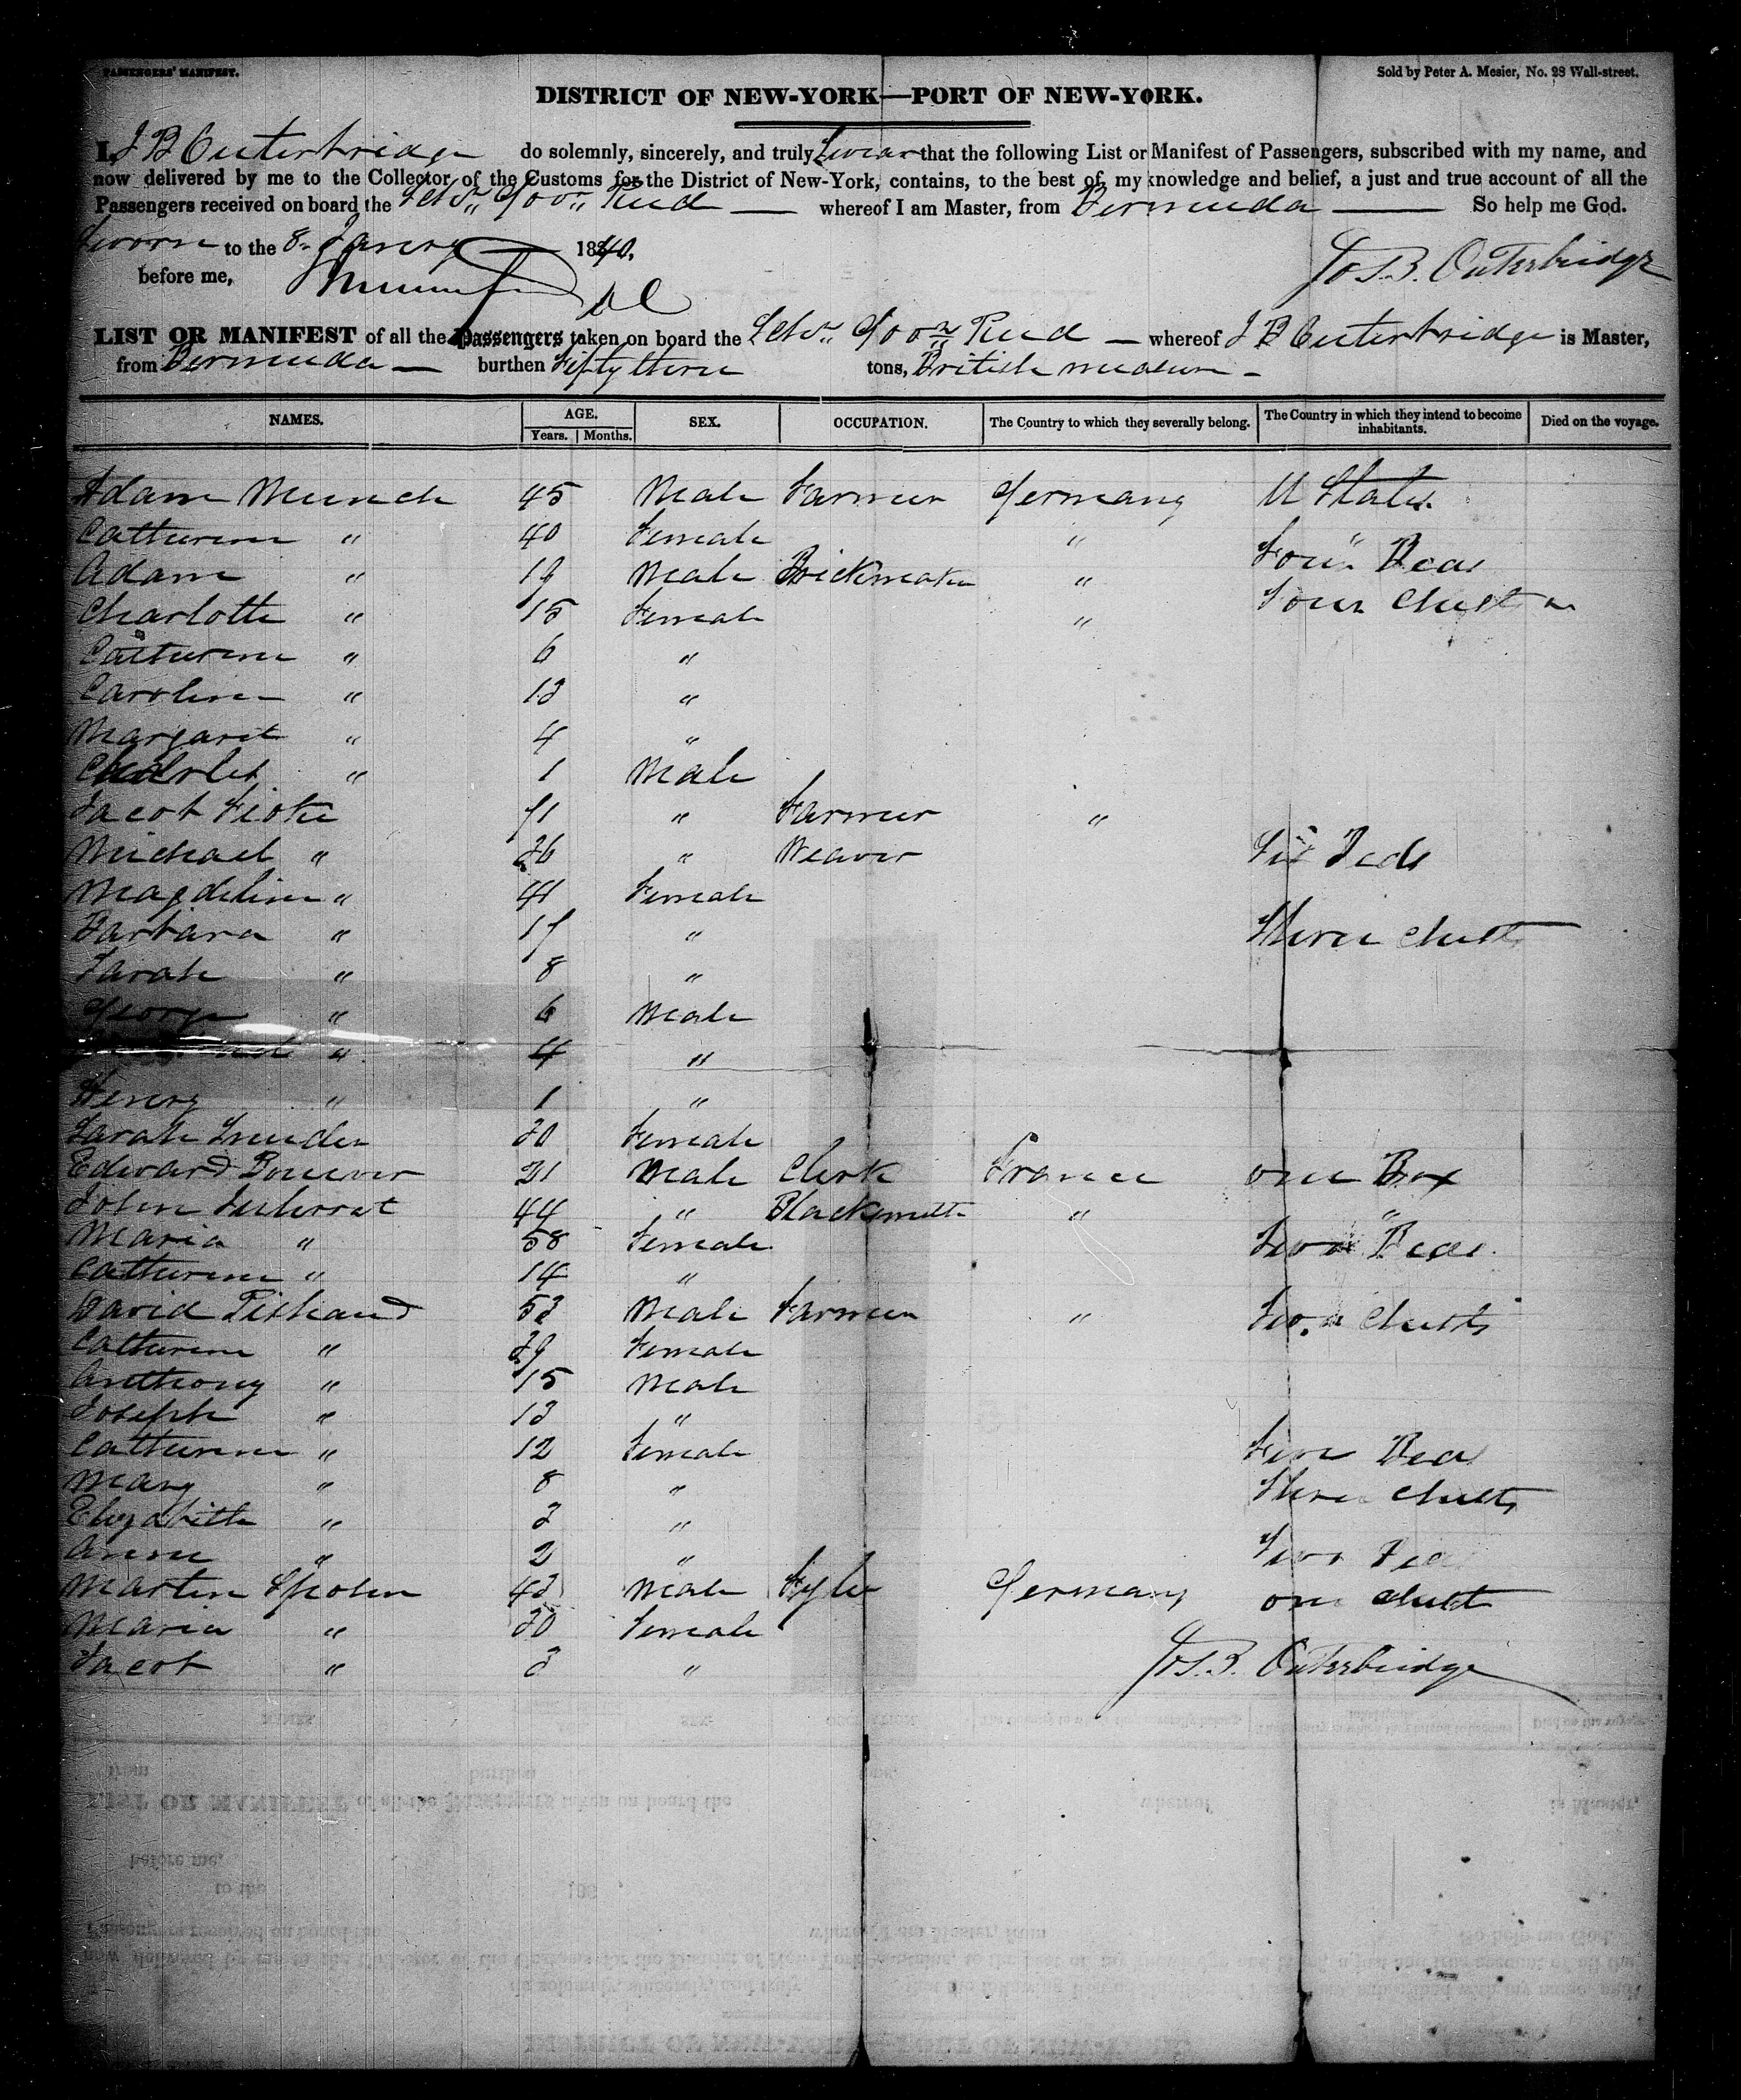 PASSENGERS' MANIFEST.
Sold by Peter A. Mesier, No. 28 Wall-street.
DISTRICT OF NEW-YORK—PORT OF NEW-YORK.
I, J B Outerbridge do solemnly, sincerely, and truly Swear that the following List or Manifest of Passengers, subscribed with my name, and
now delivered by me to the Collector of the Customs for the District of New-York, contains, to the best of my knowledge and belief, a just and true account of all the
Passengers received on board the Schr Govr Reid — whereof I am Master, from Bermuda — So help me God.
Sworn to the 8 Janery 1840.
before me,
Jos. B. Outerbridge
LIST OR MANIFEST of all the Passengers taken on board the Schr Govr Reid — whereof J B Outerbridge is Master,
from Bermuda — burthen Fifty three tons, British measure -
NAMES. AGE. Years. Months. SEX. OCCUPATION. The Country to which they severally belong. The Country in which they intend to become inhabitants. Died on the voyage.
Adam Munch 45 Male Farmer Germany U States.
Catherine " 40 Female " "
Adam " 19 Male Brickmaker " Four Beds
Charlotte " 15 Female " Four Chests
Catherine " 6 "
Caroline " 13 "
Margaret " 4 "
Charles " 1 Male
Jacob 41 " Farmer "
Michael " 26 " Weaver Six Beds
Magdeline " 41 Female
Barbara " 17 " Three Chests
Sarah " 8 "
George " 6 Male
" 4 "
Henry " 1 "
Sarah 30 Female
Edward 21 Male Clerk France one Box
John 44 " Blacksmith " "
Maria " 38 Female Two Beds
Catherine " 14 "
David 53 Male Farmer " Two Chests
Catherine " 39 Female
Anthony " 15 Male
Joseph " 13 "
Catherine " 12 Female Five Beds
Mary " 8 " Three Chests
Elizabeth " 3 "
Anne " 2 " Two Beds
Martin Spohn 43 Male Germany one Chest
Maria " 30 Female
Jacob " 3 "
Jos. B. Outerbridge